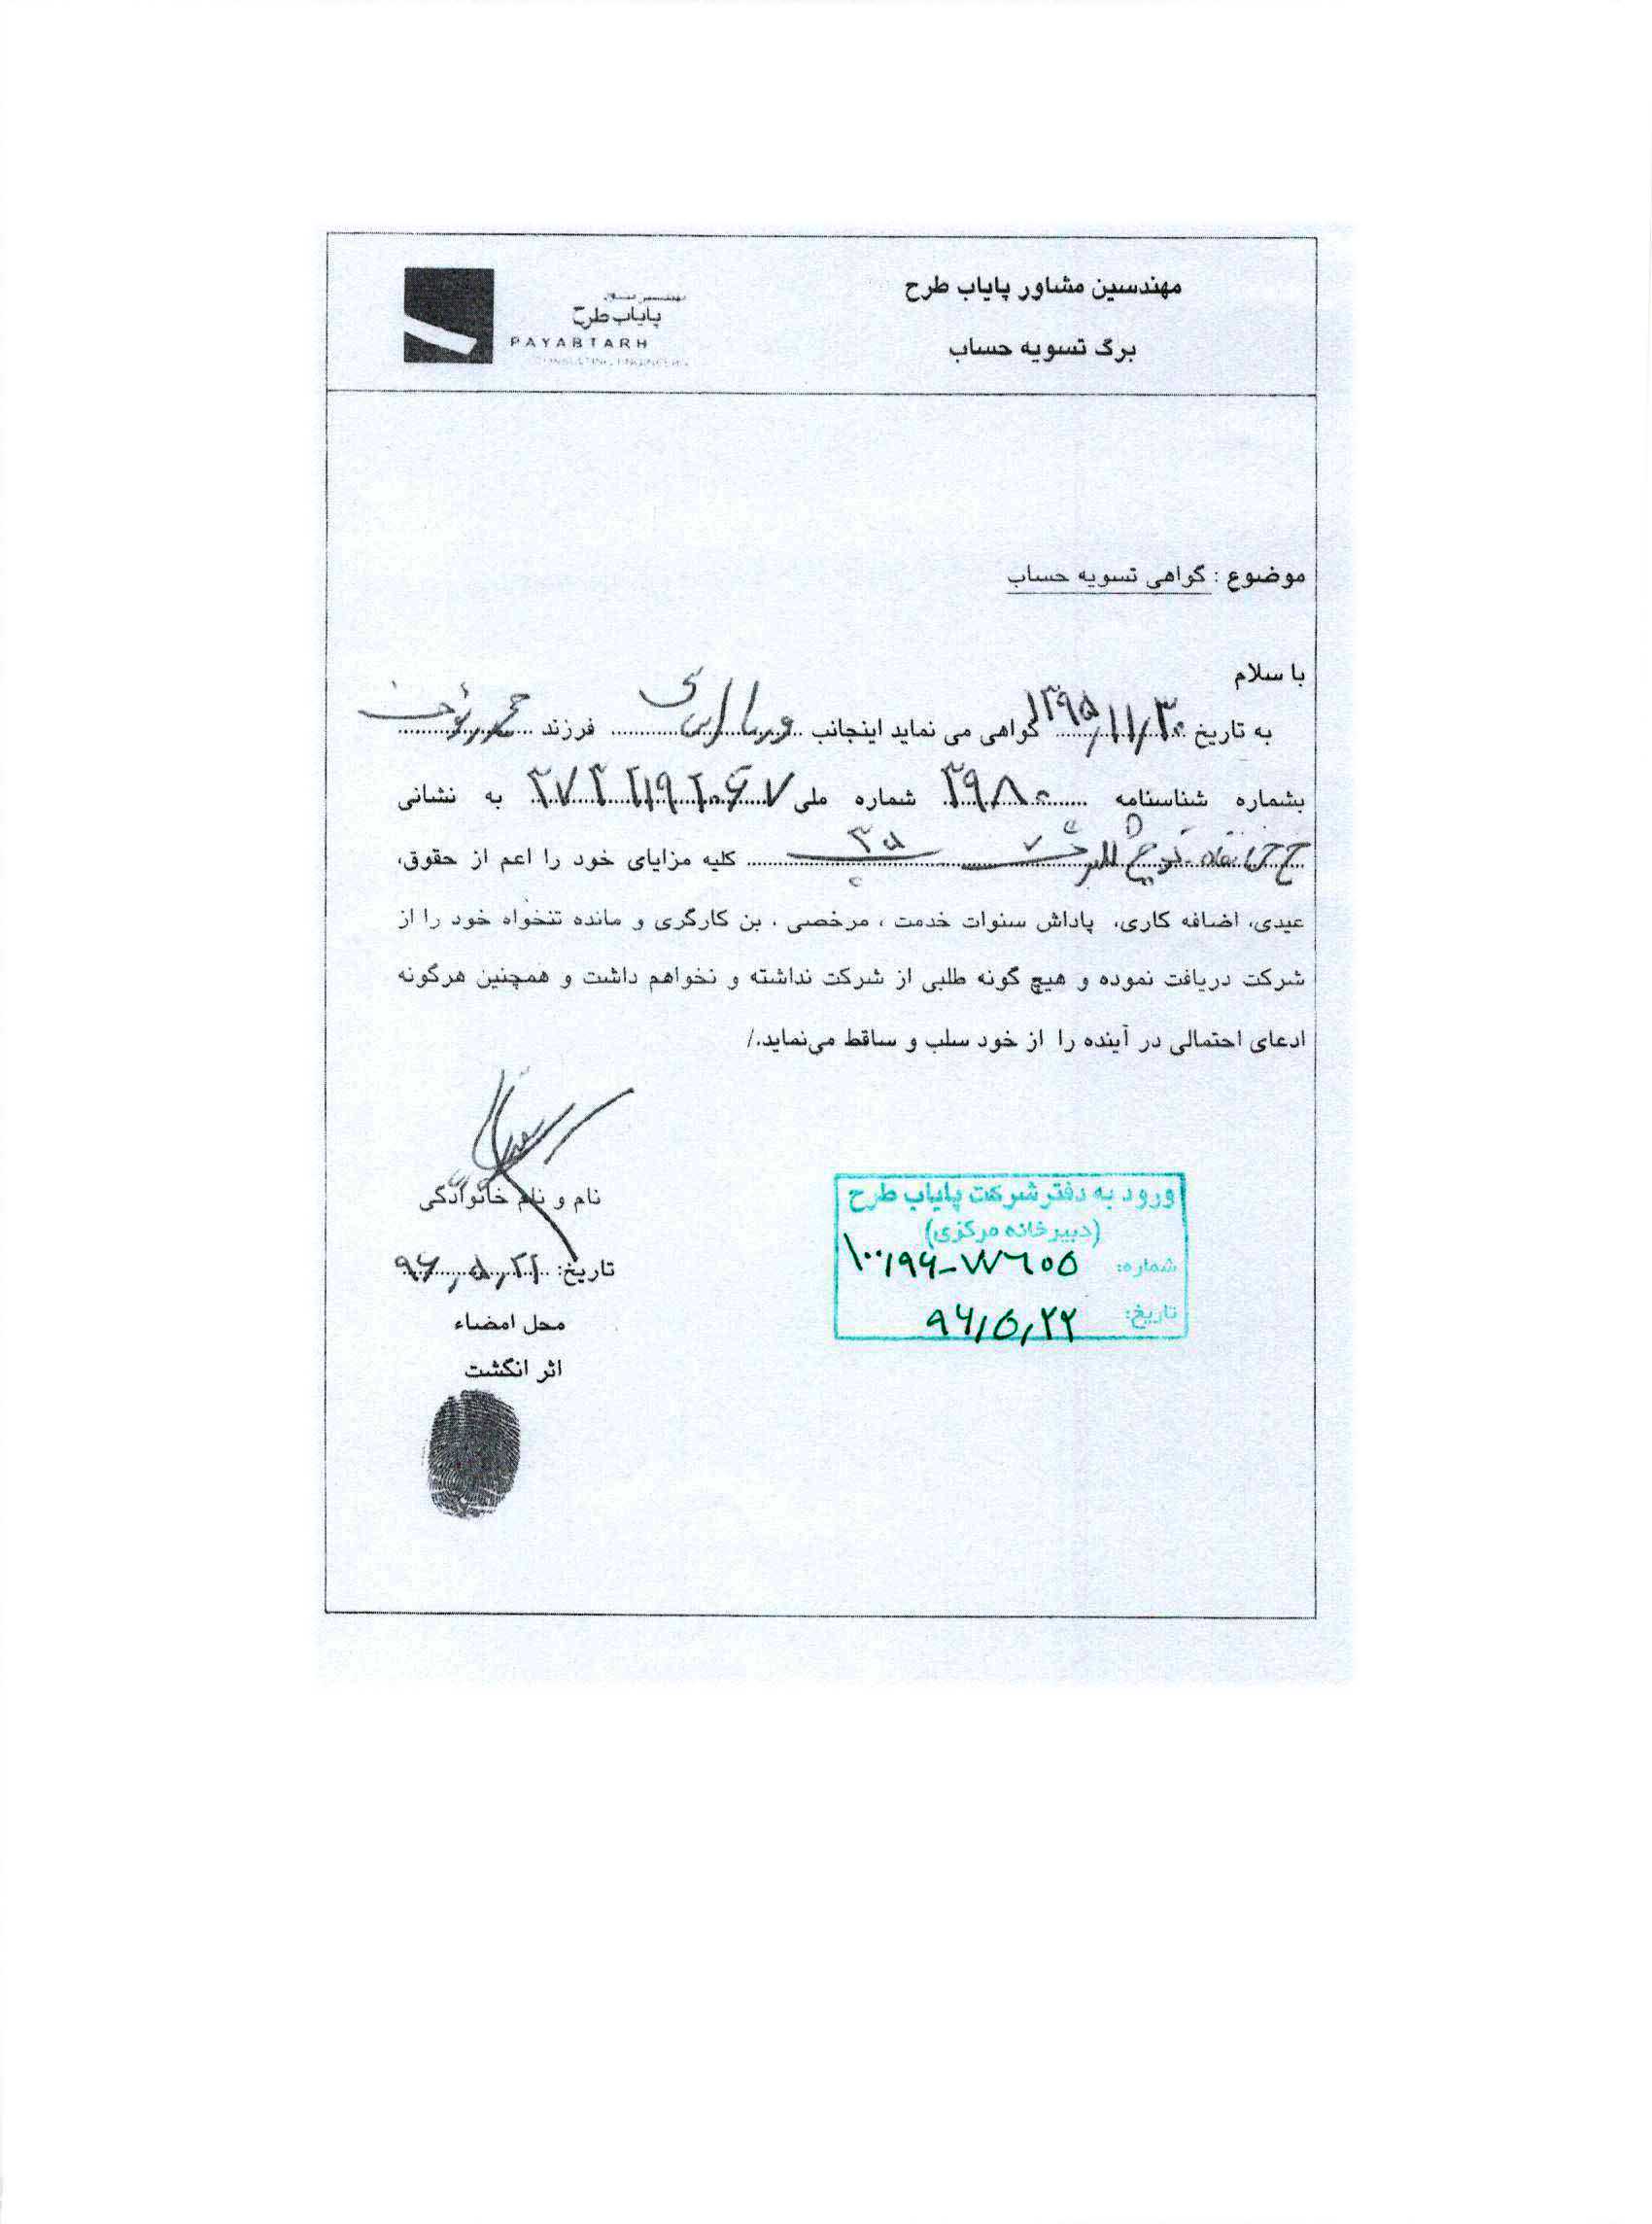 مهندسین مشاور پایاب طرح
برگ تسویه حساب
پایاب طرح
PAYABTARH
CONSULTING ENGINEERS
موضوع : گواهی تسویه حساب
با سلام
به تاریخ ۱۳۹۵/۱۱/۳۰ گواهی می نماید اینجانب فرزند محمد رئوف
بشماره شناسنامه ۳۹۸۰ شماره ملی به نشانی
۳۵ کلیه مزایای خود را اعم از حقوق،
عیدی، اضافه کاری، پاداش سنوات خدمت ، مرخصی ، بن کارگری و مانده تنخواه خود را از
شرکت دریافت نموده و هیچ گونه طلبی از شرکت نداشته و نخواهم داشت و همچنین هرگونه
ادعای احتمالی در آینده را از خود سلب و ساقط می‌نماید./
نام و نام خانوادگی
تاریخ: ۹۶,۵,۲۱
محل امضاء
اثر انگشت
ورود به دفتر شرکت پایاب طرح
(دبیرخانه مرکزی)
شماره: ۱۰۰/۹۶-۷۷۶۵۵
تاریخ: ۹۶/۵/۲۲